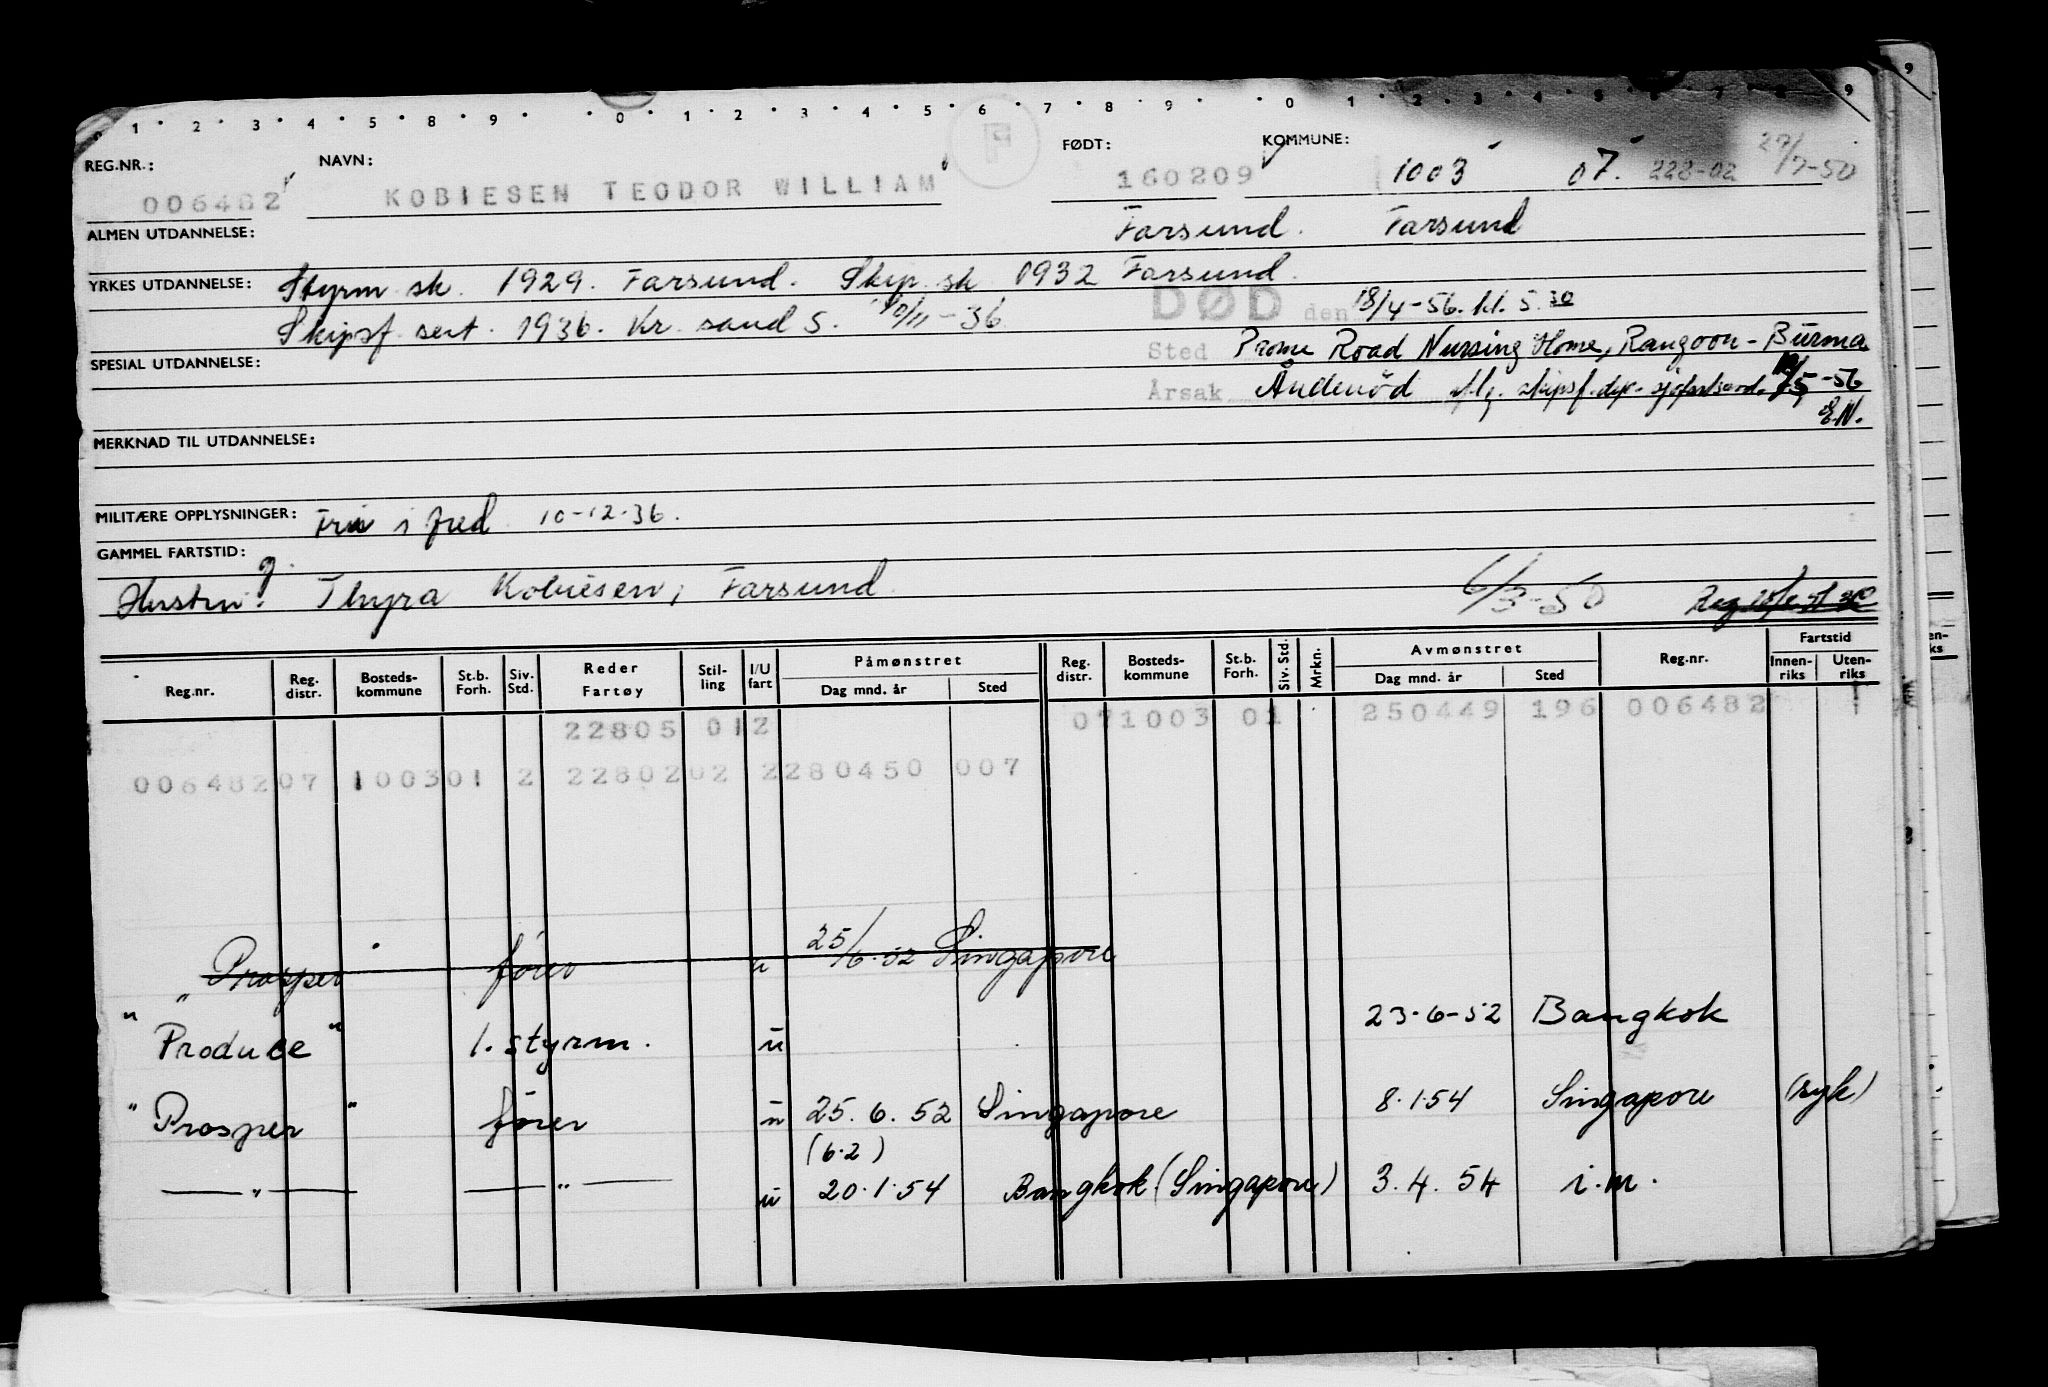 1 · 2 · 3 · 4 · 5 · 8 · 9 · · 0 · 1 · 2 · 3 · 4 · 5 · 6 · 7 · 8 · 9 · · 0 1 · 2 · 3 · 4 · 5 · 6 · 7 · 8 · 9
REG.NR.: NAVN: F FØDT: KOMMUNE: 27/7-50
006482 KOBIESEN TEODOR WILLIAM 160209 1003 07. 228-02
ALMEN UTDANNELSE: Farsund. Farsund
YRKES UTDANNELSE: Styrm.sk. 1929. Farsund. Skip.sk. 1932 Farsund.
Skipsf. sert. 1936. Kr. sand S. 10/11-36 DØD den 18/4-56. kl. 5.30
SPESIAL UTDANNELSE: Sted Prome Road Nursing Home, Rangoon - Burma
Årsak Åndenød iflg. skipsf. dep. 5-56
E.N.
MERKNAD TIL UTDANNELSE:
MILITÆRE OPPLYSNINGER: Fri i fred 10-12-36.
GAMMEL FARTSTID:
g.
Hustru: Thyra Kobiesen, Farsund 6/3-50 Reg
Reg.nr. Reg. distr. Bosteds-kommune St.b. Forh. Siv. Std. Reder Fartøy Stil-ling I/U fart Påmønstret Dag mnd. år Sted Reg. distr. Bosteds-kommune St.b. Forh. Siv. Std. Mrkn. Avmønstret Dag mnd. år Sted Reg.nr. Fartstid Innen-riks Uten-riks
22805 012 071003 01 250449 196 006482
00648207 100301 2 2280202 2280450 007
"Prosper" fører u 25/6.52 Singapore
"Produce" 1. styrm. u 23-6-52 Bangkok
"Prosper" fører u 25.6.52 Singapore 8.1.54 Singapore (syk)
(6.2)
—"— —"— u 20.1.54 Bangkok (Singapore) 3.4.54 i.m.